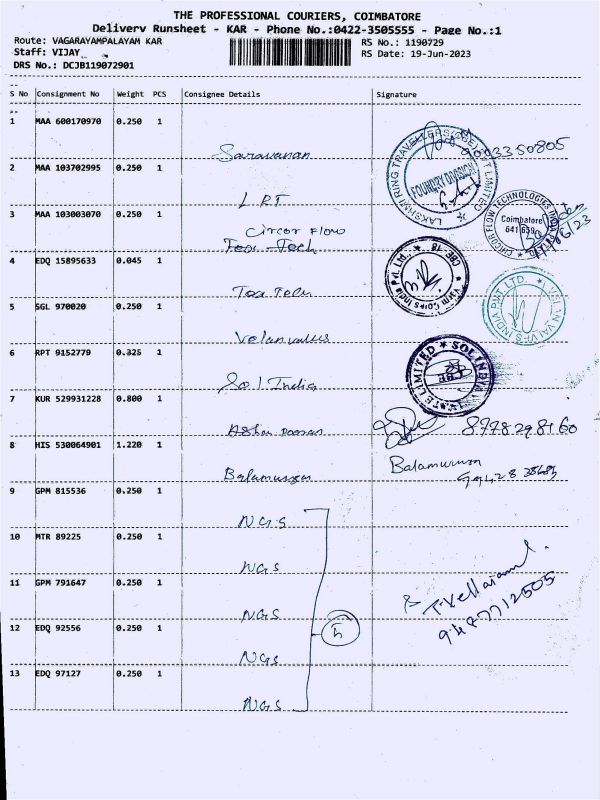 THE PROFESSIONAL COURIERS, COIMBATORE
Delivery Runsheet - KAR - Phone No.:0422-3505555 - Page No.:1
Route: VAGARAYAMPALAYAM KAR
RS No.: 1190729
Staff: VIJAY
RS Date: 19-Jun-2023
DRS No.: DCJB119072901
S No Consignment No Weight PCS Consignee Details Signature
1 MAA 600170970 0.250 1
Saravanan
2 MAA 103702995 0.250 1
LRT
LAKSHMI RING TRAVELLERS (CBE) PVT LIMITED
FOUNDRY DIVISION
3 MAA 103003070 0.250 1
Circor Flow
CIRCOR FLOW TECHNOLOGIES INDIA
Coimbatore
641 659
4 EDQ 15895633 0.045 1
CBE - 18
5 SGL 970020 0.250 1
Velan valves
VELAN VALVES INDIA PVT LTD.
6 RPT 9152779 0.325 1
Sol India
SOL INDIA
LIMITED
7 KUR 529931228 0.800 1
8778298160
8 HIS 530064901 1.220 1
Balamurugan
Balamurugan
9 GPM 815536 0.250 1
NGS
10 MTR 89225 0.250 1
NGS
11 GPM 791647 0.250 1
NGS
5
T. Vellaiam
9487712505
12 EDQ 92556 0.250 1
NGS
13 EDQ 97127 0.250 1
NGS